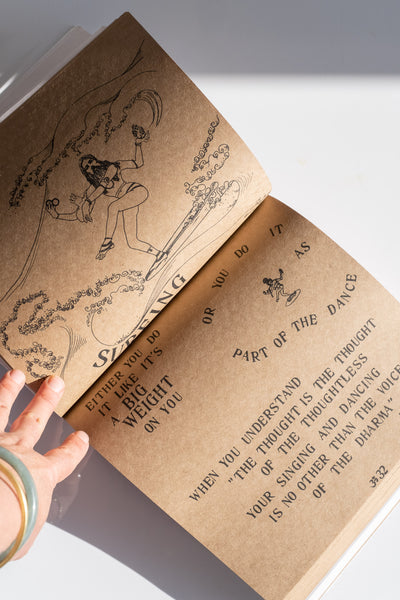 SURFING
EITHER YOU DO
IT LIKE IT'S
A BIG
WEIGHT
ON YOU
OR YOU DO IT
AS
PART OF THE DANCE
WHEN YOU UNDERSTAND
"THE THOUGHT IS THE THOUGHT
OF THE THOUGHTLESS
YOUR SINGING AND DANCING
IS NO OTHER THAN THE VOICE
OF THE DHARMA"
32